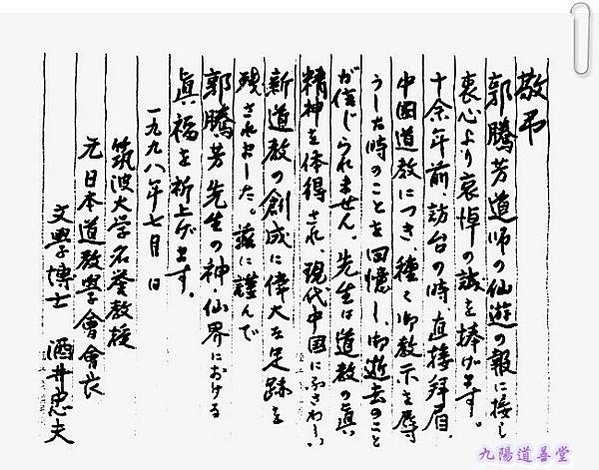 敬弔
郭騰芳道師の仙遊の報に接し
衷心より哀悼の誠を捧げます。
十余年前、訪台の時、直接拝眉、
中国道教につき、種々御教示を辱
うした時のことを回憶し、御逝去のこと
が信じられません。先生は道教の真
精神を体得され、現代中国にふさわしい
新道教の創成に偉大な足跡を
残されました。茲に謹んで
郭騰芳先生の神・仙界における
真福を祈上げます。
一九九八年七月 日
筑波大学名誉教授
元日本道教學會會長
文學博士 酒井忠夫
九陽道善堂